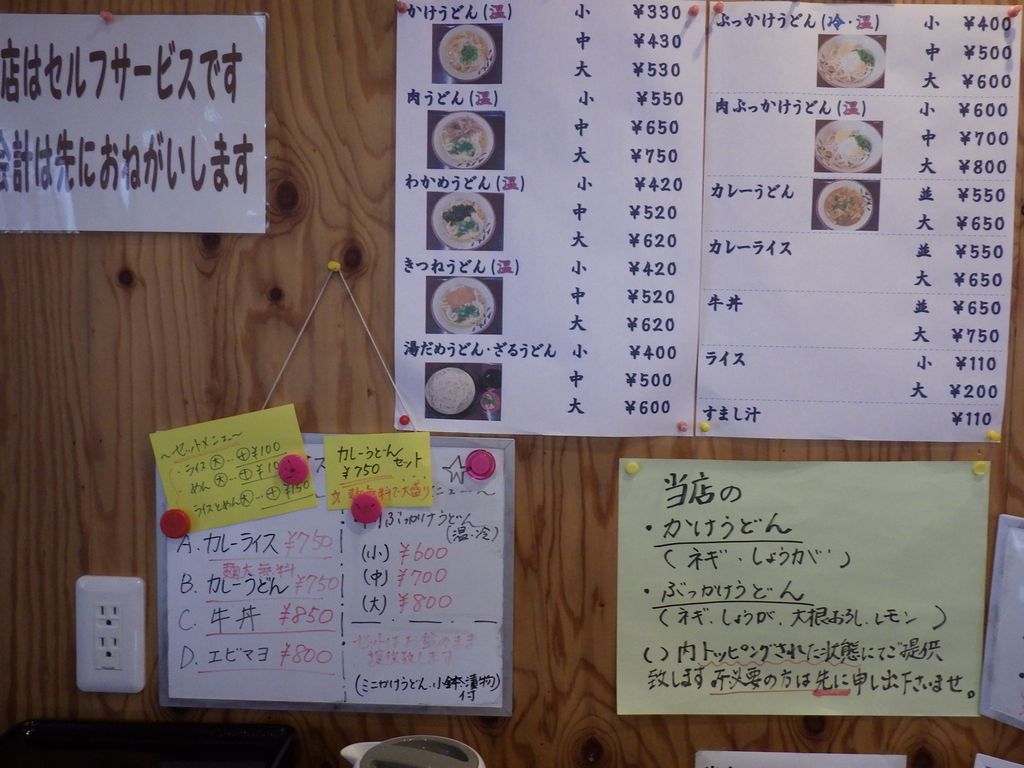 店はセルフサービスです
会計は先におねがいします
かけうどん(温) 小 ¥330
中 ¥430
大 ¥530
肉うどん(温) 小 ¥550
中 ¥650
大 ¥750
わかめうどん(温) 小 ¥420
中 ¥520
大 ¥620
きつねうどん(温) 小 ¥420
中 ¥520
大 ¥620
湯だめうどん・ざるうどん 小 ¥400
中 ¥500
大 ¥600
ぶっかけうどん(冷・温) 小 ¥400
中 ¥500
大 ¥600
肉ぶっかけうどん(温) 小 ¥600
中 ¥700
大 ¥800
カレーうどん 並 ¥550
大 ¥650
カレーライス 並 ¥550
大 ¥650
牛丼 並 ¥650
大 ¥750
ライス 小 ¥110
大 ¥200
すまし汁 ¥110
~セットメニュー~
・ライス大…㊉¥100
・めん大…㊉¥10
・ライスとめん大…㊉¥150
カレーうどん
¥750 セット
A. カレーライス ¥750
麺大無料
B. カレーうどん ¥750
C. 牛丼 ¥850
D. エビマヨ ¥800
☆
ニュー~
ぶっかけうどん
(温・冷)
(小) ¥600
(中) ¥700
(大) ¥800
(ミニかけうどん・小鉢・漬物)
付
当店の
・かけうどん
(ネギ・しょうが)
・ぶっかけうどん
(ネギ・しょうが、大根おろし、レモン)
( )内トッピングされた状態にてご提供
致します 不必要の方は先に申し出下さいませ。